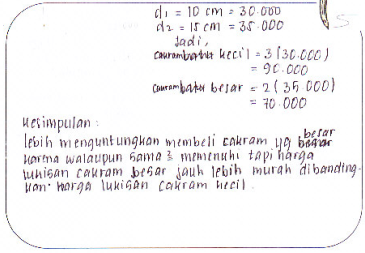 d1 = 10 cm = 30.000
d2 = 15 cm = 35.000
Jadi,
kecil = 3 (30.000)
= 90.000
besar = 2 (35.000)
= 70.000
Kesimpulan :
lebih menguntungkan membeli cakram yg besar
karena walaupun sama2 memenuhi tapi harga
lukisan cakram besar jauh lebih murah dibanding-
kan harga lukisan cakram kecil.